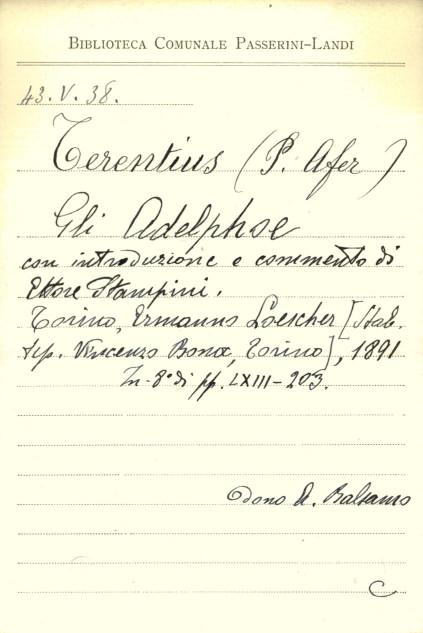 BIBLIOTECA COMUNALE PASSERINI-LANDI
43.V.38.
Terentius (P. Afer)
Gli Adelphoe
con introduzione e commento di
Ettore Stampini.
Torino, Ermanno Loescher [Stab.
tip. Vincenzo Bona, Torino], 1891
In-8° di pp. LXIII-203.
Dono A. Balsamo
C